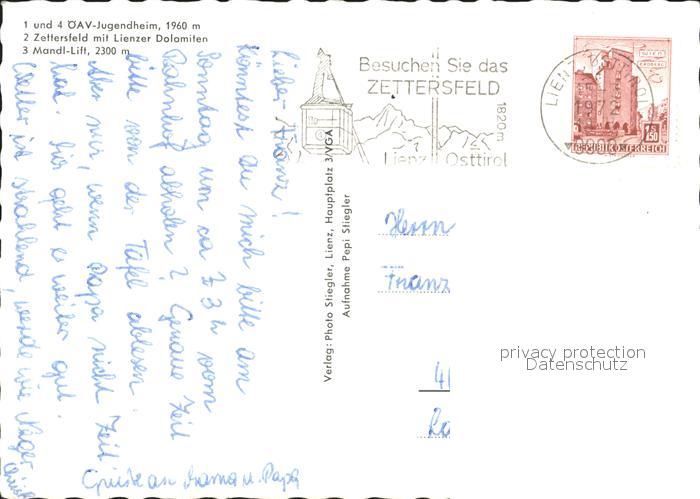 1 und 4 ÖAV-Jugendheim, 1960 m
2 Zettersfeld mit Lienzer Dolomiten
3 Mandl-Lift, 2300 m
Besuchen Sie das
ZETTERSFELD
1820m
Lienz Osttirol
LIENZ
WIEN
ERDBERG
S 1.50
REPUBLIK ÖSTERREICH
Lieber Franz!
Könntest du mich bitte am
Sonntag um ca ½ 3 h vom
Bahnhof abholen? Genaue Zeit
bitte von der Tafel ablesen.
Aber nur, wenn Papa nicht Zeit
hat. Hier geht es weiter gut.
Wetter ist strahlend, werde wie Neger
Grüße an Mama u. Papa
Verlag: Photo Stiegler, Lienz, Hauptplatz 3/VGA
Aufnahme Pepi Stiegler
Herrn
Franz
privacy protection
Datenschutz